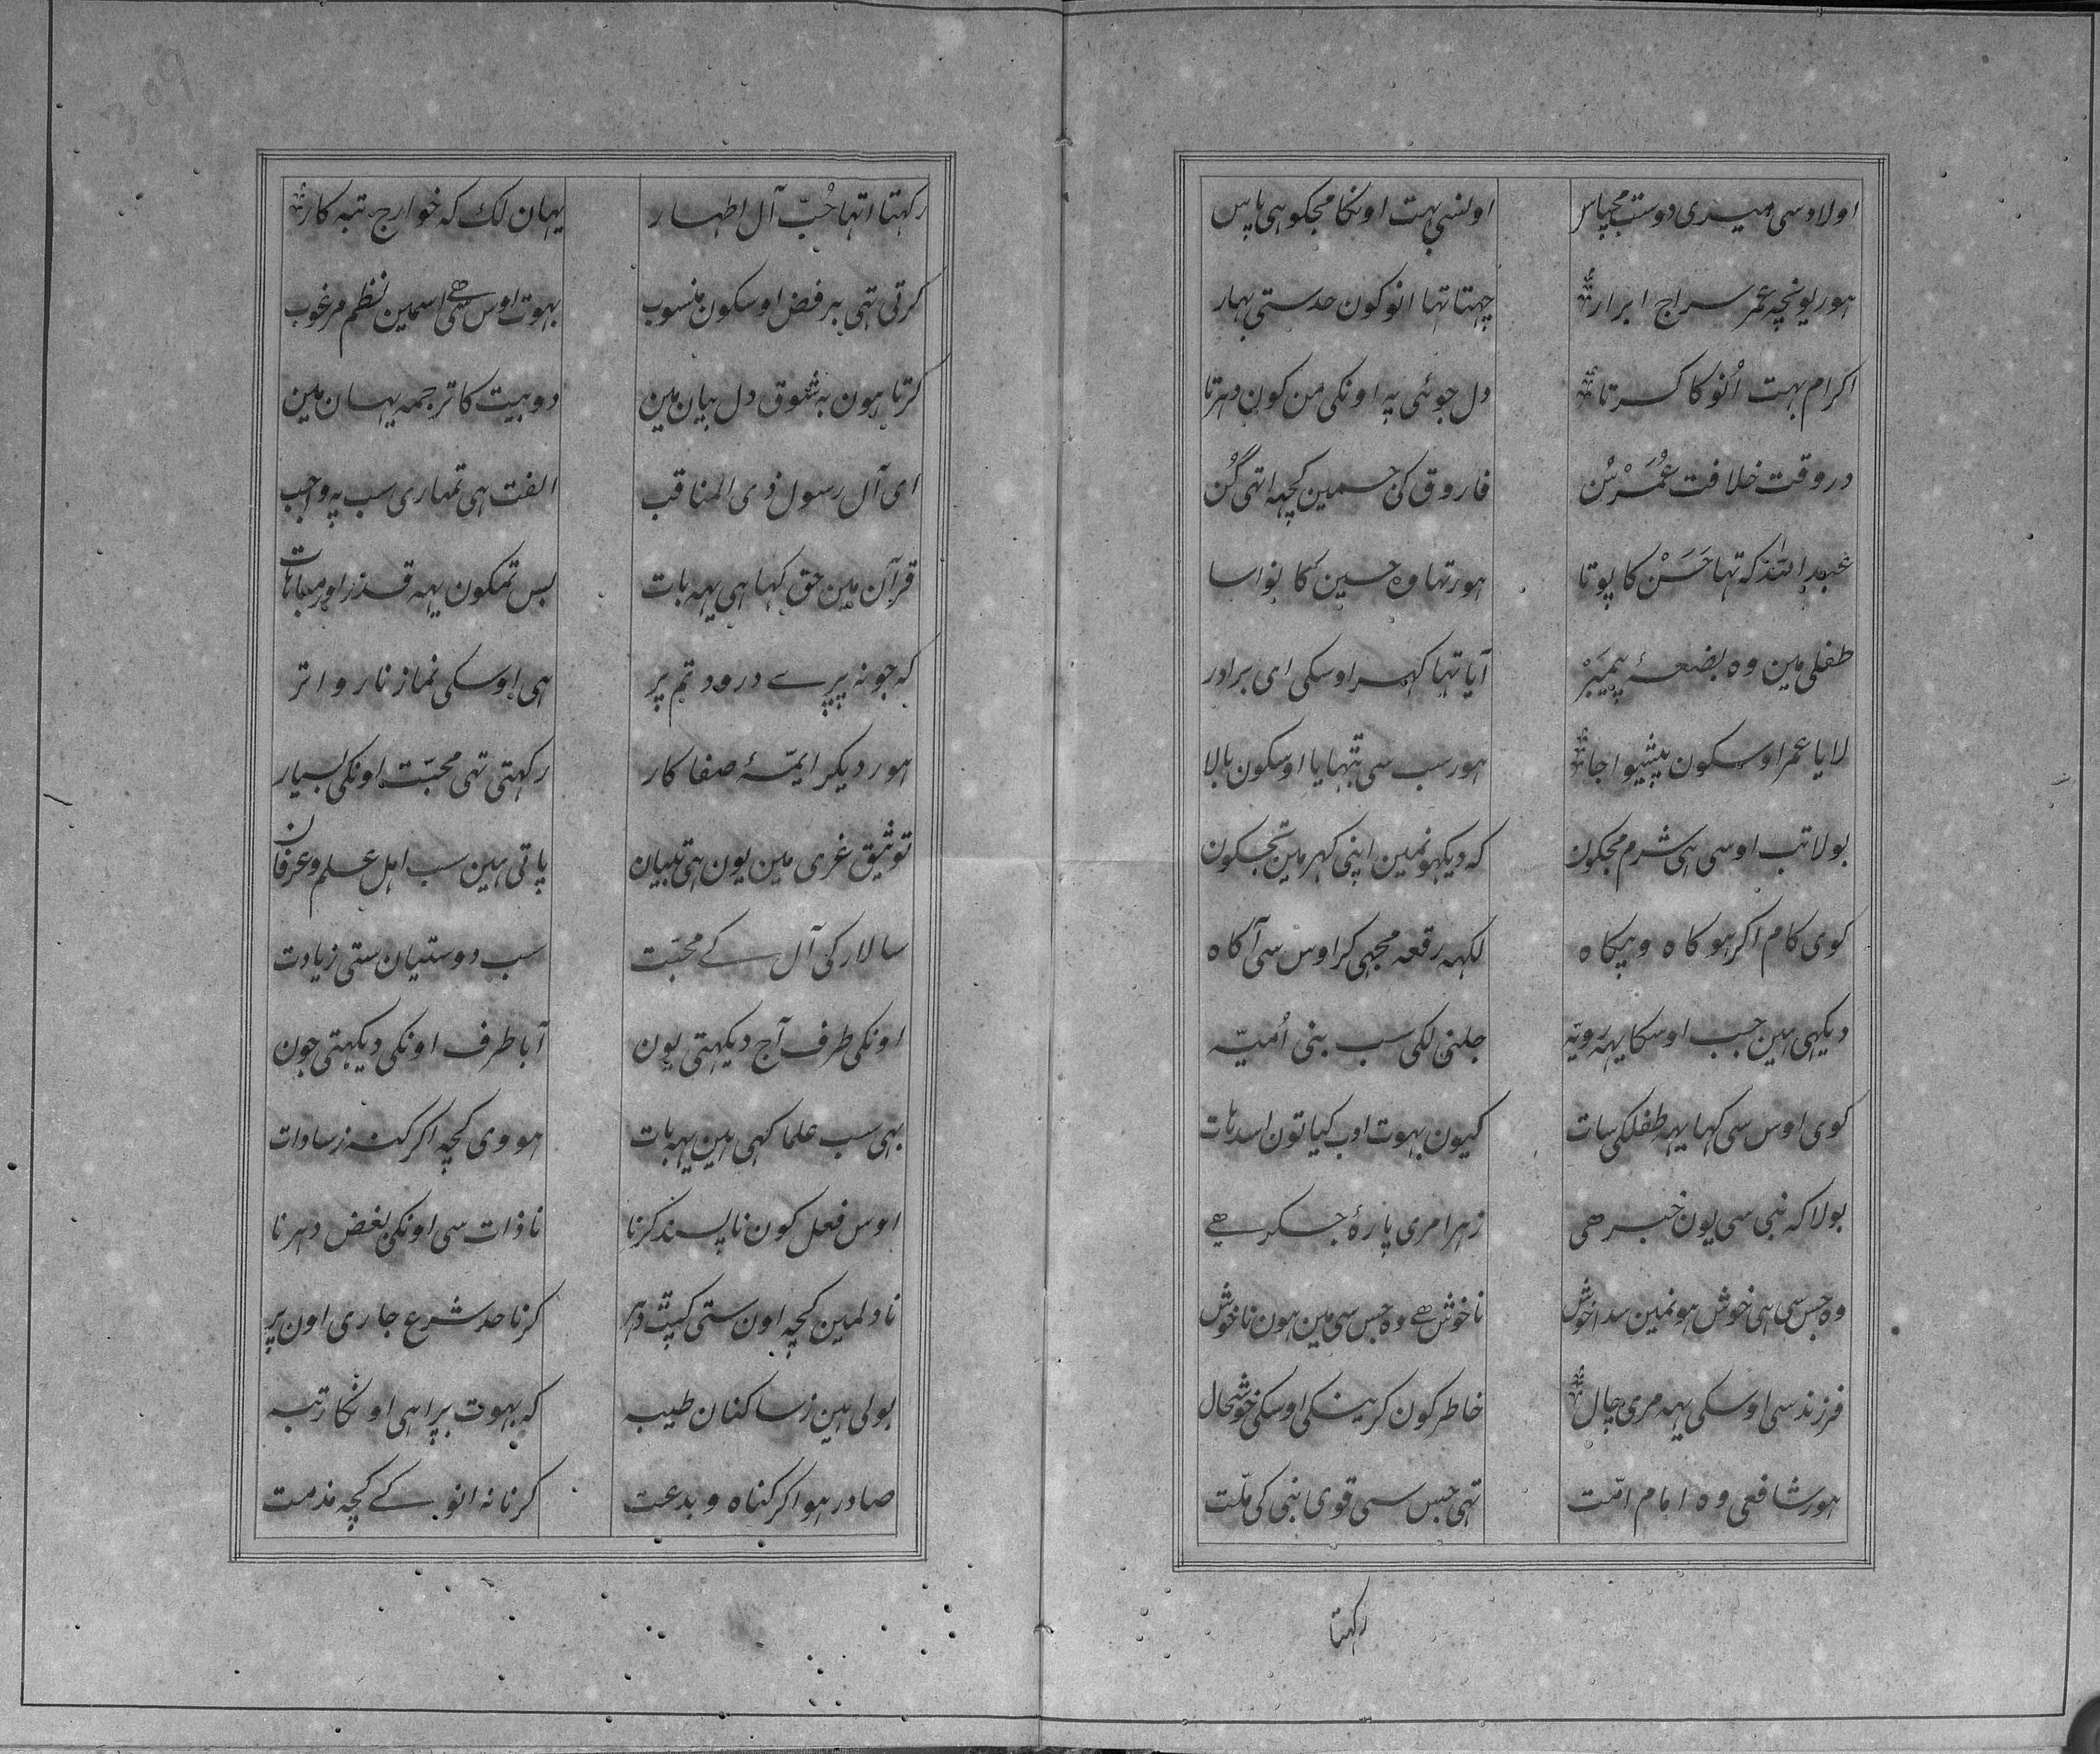 اولاد سی میری دوست مجپاس اولنسی بہت اونکا مجکو ہی پاس
ہور یونچہ عمر سراج ابرار چہتا تہا انو کون حد ستی بہار
اکرام بہت اُنو کا کرتا دل جوئی پہ اونکی من کون دہرتا
در وقت خلافت عُمَرْ سُن فاروق کی جسمین کچہہ اتہی گُن
عبد اللہ کہ تہا حَسَنْ کا پوتا ہور تہا وہ حسین کا نواسا
طفلی مین وہ بضعۂ پیمبَرْ آیا تہا کہر اوسکی ای برادر
لایا عمر اوسکون پیشیوا جا ہور سب سی بتہایا اوسکون بالا
بولا تب اوسی ہی شرم مجکون کہ دیکہو نمین اپنی کہر مین تجکون
کوی کام اکر ہو کاہ و بیکاہ لکہہ رقعہ مجہی کر اوس سی آکاہ
دیکہی ہین جب اوسکا یہہ رویّہ جلنی لکی سب بنی اُمیّہ
کوی اوس سی کہا یہہ طفلکی سات کیون بہوت ادب کیا تون اسدہات
بولا کہ نبی سی یون خبر ھی زہرا مری پارۂ جکر ھے
وہ جس سی ہی خوش ہو نمین سدا خوش ناخوش ھے وہ جس سی مین ہون ناخوش
فرزند سی اوسکی یہہ مری چال خاطر کون کرینکی اوسکی خوشحال
ہور شافعی وہ امام امّت تہی جس سی قوی نبی کی ملّت
رکہتا
رکہتا اتہا حُبّ آل اطہار یہان لک کہ خوارج تبہ کار
کرتی تہی برفض اوسکون منسوب بہوت اوس سی ھے اسمین نظم مرغوب
کرتا ہون بہ شوق دل بیان مین دو بیت کا ترجمہ یہان مین
ای آل رسول ذی المناقب الفت ہی تمہاری سب پہ واجب
قرآن مین حق کہا ہی یہہ بات بس تمکون یہہ قدر اور مباہات
کہ جو نہ پرپے درود تم پر ہی اوسکی نماز ناروا تر
ہور دیکر ایمّۂ صفا کار رکہتی تہی محبّت اونکی بسیار
توثیق غری مین یون ہی تبیان پاتی ہین سب اہل علم و عرفان
سالار کی آل کے محبّت سب دوستیان ستی زیادت
اونکی طرف آج دیکہتی یون آبا طرف اونکی دیکہتی جون
بہی سب علما کہی ہین یہہ بات ہووی کچہ اکر کنہ ز سادات
اوس فعل کون ناپسند کرنا نا ذات سی اونکی بغض دہرنا
نا دلمین کچہ اون ستی کپٹ دہر کرنا حد شرع جاری اون پر
بولی ہین ز ساکنان طیبہ کہ بہوت بڑا ہی اونکا رتبہ
صادر ہو اکر کناہ و بدعت کرنا نہ انو کے کچہ مذمت